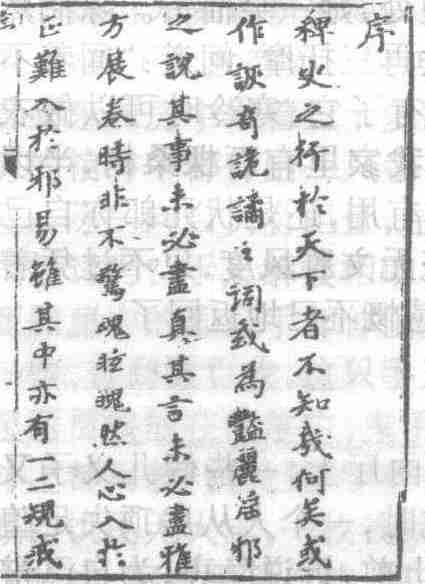 序
稗史之行於天下者不知幾何矣或
作詼奇詭譎之詞或為艷麗淫邪
之說其事未必盡真其言未必盡雅
方展卷時非不驚魂眩魄然人心入於
正難入於邪易雖其中亦有一二規戒